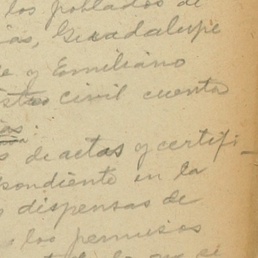 los poblados de
Guadalupe
y Emiliano
civil cuenta
de actas y certifi-
pondiente en la
dispensas de
los permisos